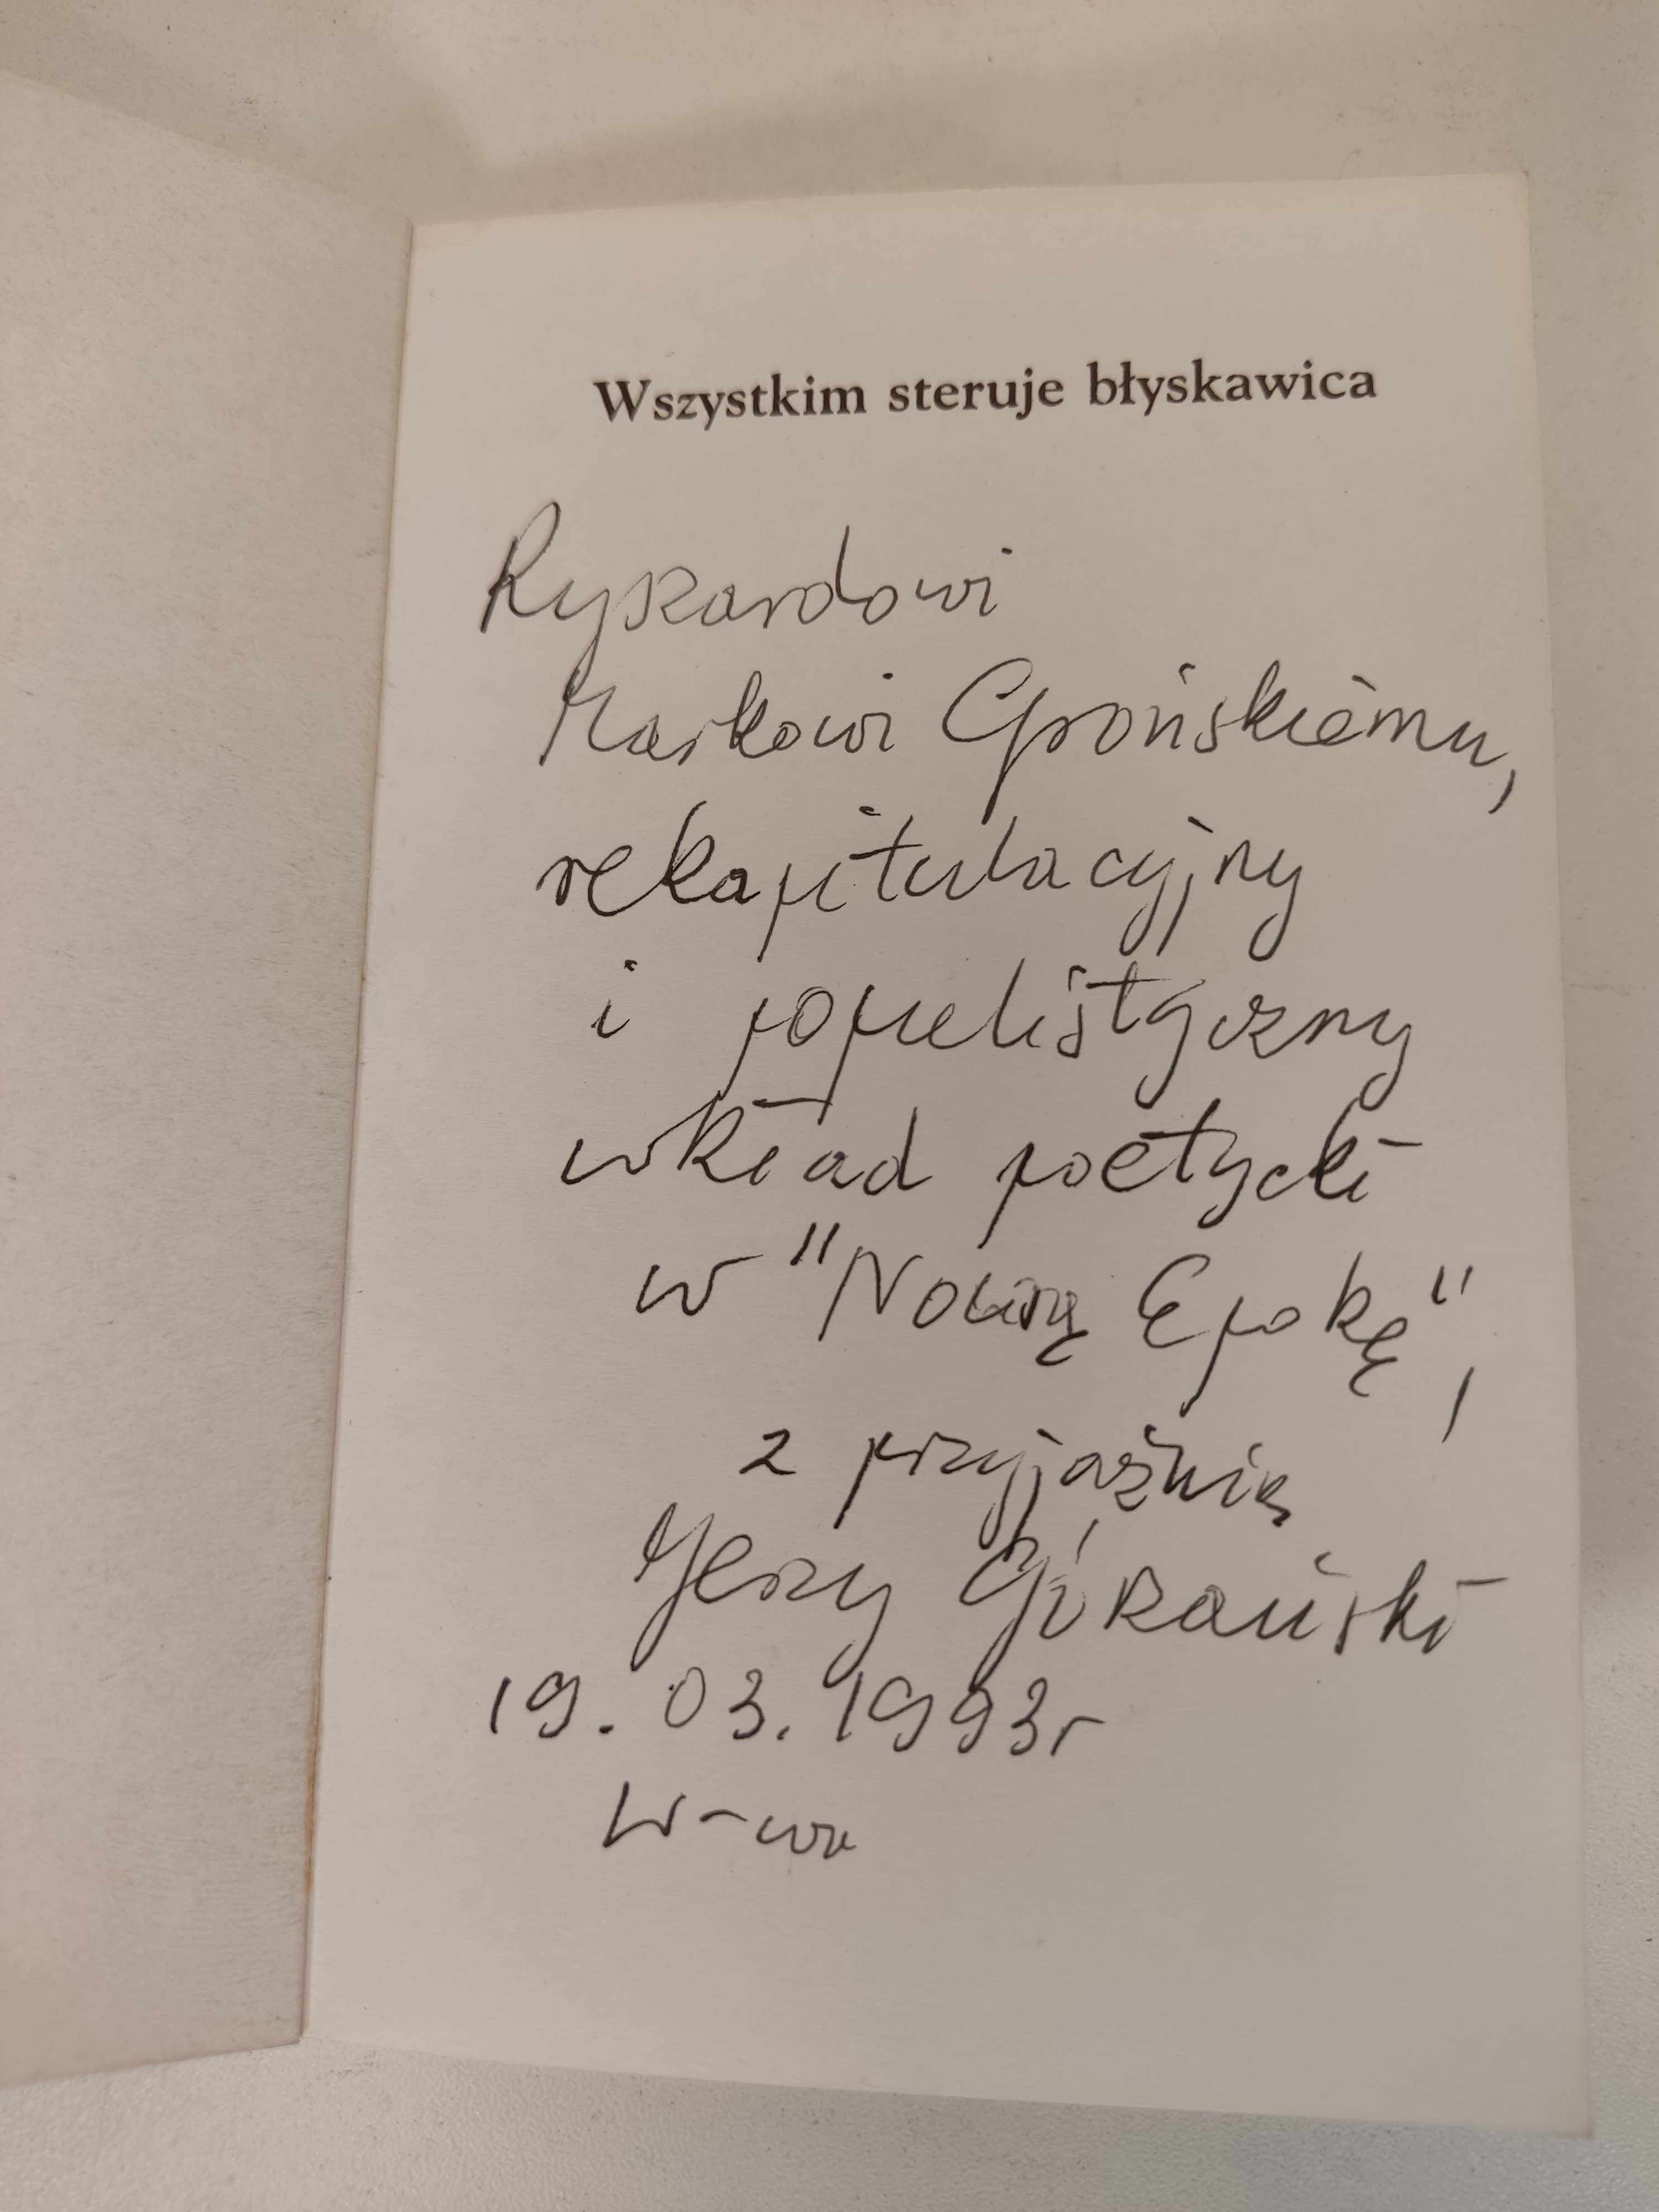 Wszystkim steruje błyskawica
Ryszardowi
Markowi Grońskiemu,
rekapitulacyjny
i populistyczny
wkład poetycki
w "Nową Epokę",
z przyjaźnią
Jerzy Górzański
19. 03. 1993r
W-wa